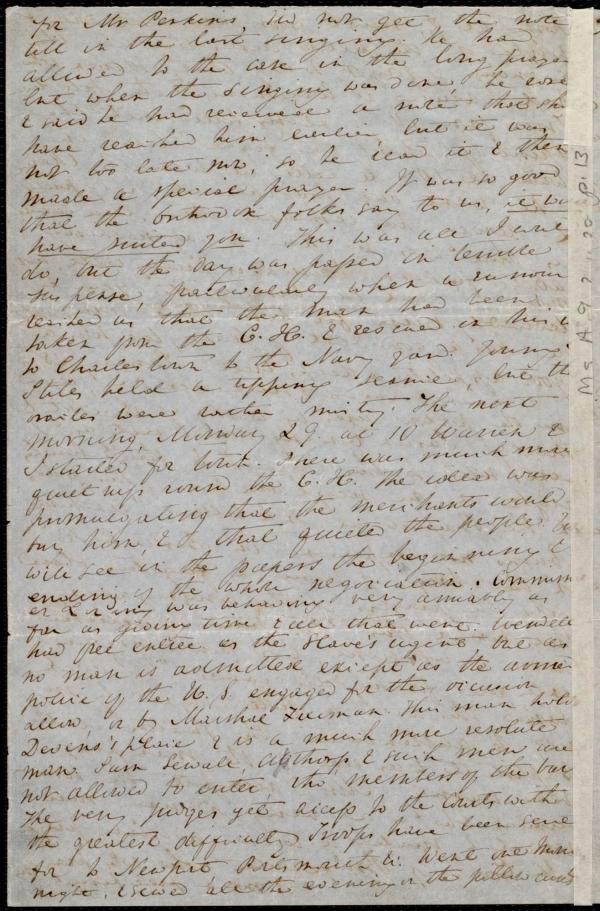 for Mr Perkins, did not get the note
till in the last singing. He had
allowed to the case in the long prayer
but when the singing was done, he rose
& said he had received a note that sh
have reached him earlier, but it was
not too late now; so he read it & then
made a special prayer. It was so good
that the orthodox folks say to us, it wd
have suited you. This was all I
do, but the day was passed in terrible
suspense, particularly when a rumour
reached us that the man had been
taken from the C. H. & rescued in his
to Charlestown to the Navy yard. Young
Stiles held a tipping seance, but th
were rather misty. The next
morning, Monday 29 at 10 Warren &
I started for town. There was much more
quiet round the C. H. The idea was
promulgating that the merchants would
buy him, & that quieted the people. You
will see in the papers the beginning &
ending of the whole negociation. Commissn
er Loring was behaving very amiably as
far as giving time & all that were. Wendell
had free entrée as the slave's agent, but as
no man is admitted except as the armed
police of the U. S. engaged for the occasion
allow, or by Marshal Freeman. This man holds
Devens's place & is a much more resolute
man. Sam Sewall, & such men are
not allowed to enter, tho' members of the bar
The very judges get access to the courts with
the greatest difficulty. Troops have been sent
for to Newport Portsmouth &c. Went one Mon
night. I sewed all the evening on the pillow cases
Ms A 9 2 .. 28 p. 13